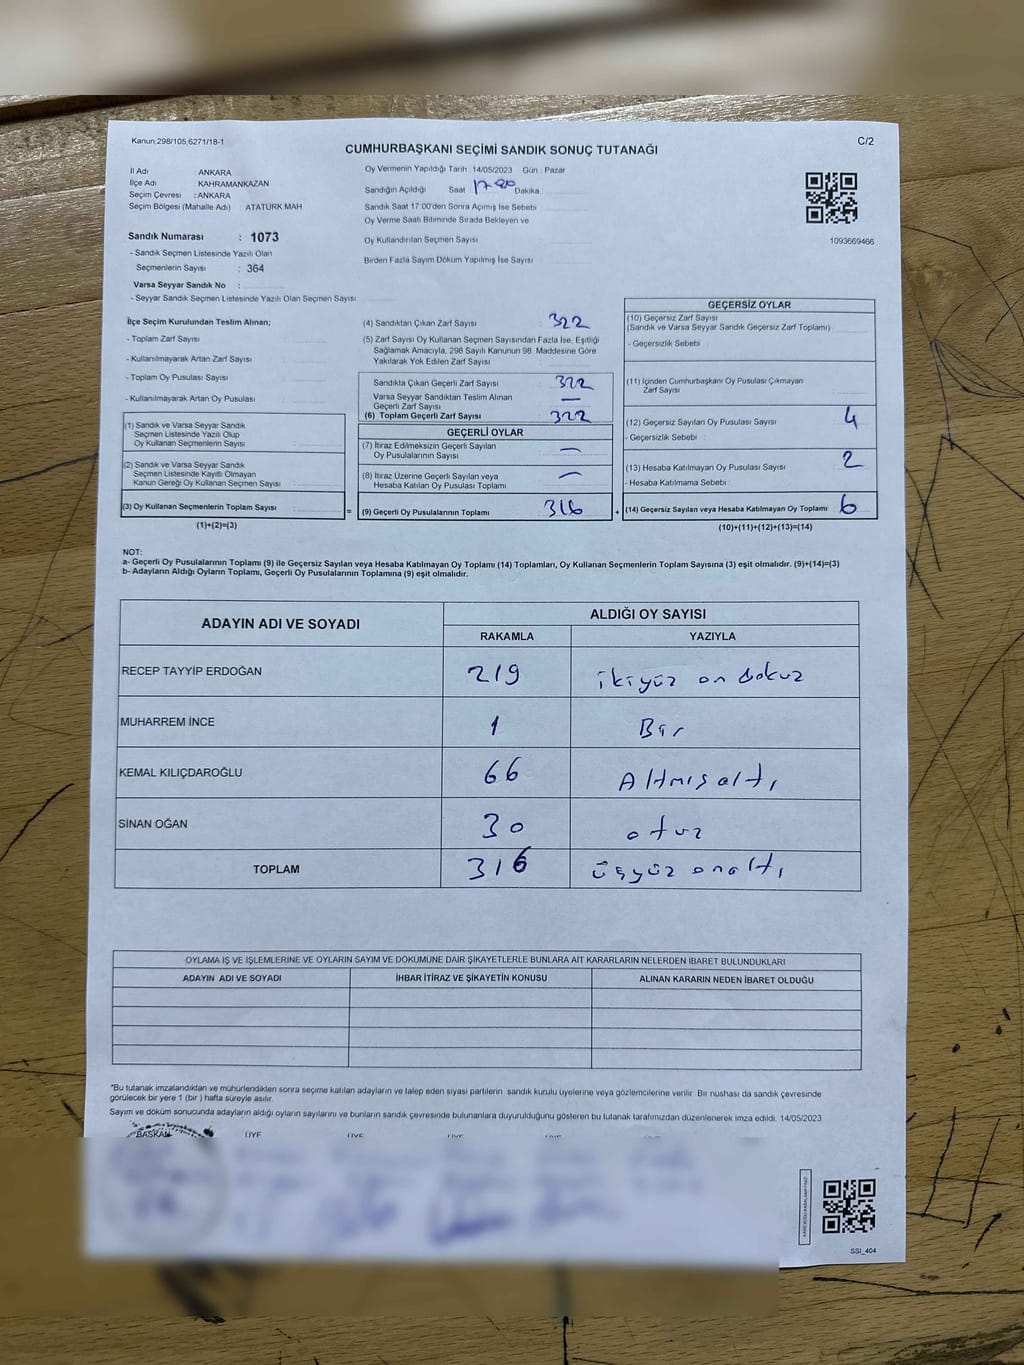 Kanun,298/105,6271/18-1
C/2
CUMHURBAŞKANI SEÇİMİ SANDIK SONUÇ TUTANAĞI
İl Adı : ANKARA
İlçe Adı : KAHRAMANKAZAN
Seçim Çevresi : ANKARA
Seçim Bölgesi (Mahalle Adı) : ATATÜRK MAH
Sandık Numarası : 1073
- Sandık Seçmen Listesinde Yazılı Olan
Seçmenlerin Sayısı : 364
Varsa Seyyar Sandık No :
- Seyyar Sandık Seçmen Listesinde Yazılı Olan Seçmen Sayısı
Oy Vermenin Yapıldığı Tarih : 14/05/2023 Gün : Pazar
Sandığın Açıldığı Saat Dakika
Sandık Saat 17:00'den Sonra Açımış İse Sebebi
Oy Verme Saati Bitiminde Sırada Bekleyen ve
Oy Kullandırılan Seçmen Sayısı
Birden Fazla Sayım Döküm Yapılmış İse Sayısı
1093669466
İlçe Seçim Kurulundan Teslim Alınan;
- Toplam Zarf Sayısı
- Kullanılmayarak Artan Zarf Sayısı
- Toplam Oy Pusulası Sayısı
- Kullanılmayarak Artan Oy Pusulası
(1) Sandık ve Varsa Seyyar Sandık
Seçmen Listesinde Yazılı Olup
Oy Kullanan Seçmenlerin Sayısı
(2) Sandık ve Varsa Seyyar Sandık
Seçmen Listesinde Kayıtlı Olmayan
Kanun Gereği Oy Kullanan Seçmen Sayısı
(3) Oy Kullanan Seçmenlerin Toplam Sayısı =
(1)+(2)=(3)
(4) Sandıktan Çıkan Zarf Sayısı 322
(5) Zarf Sayısı Oy Kullanan Seçmen Sayısından Fazla İse, Eşitliği
Sağlamak Amacıyla, 298 Sayılı Kanunun 98. Maddesine Göre
Yakılarak Yok Edilen Zarf Sayısı
Sandıkta Çıkan Geçerli Zarf Sayısı 322
Varsa Seyyar Sandıktan Teslim Alınan
Geçerli Zarf Sayısı —
(6) Toplam Geçerli Zarf Sayısı 322
GEÇERLİ OYLAR
(7) İtiraz Edilmeksizin Geçerli Sayılan
Oy Pusulalarının Sayısı —
(8) İtiraz Üzerine Geçerli Sayılan veya
Hesaba Katılan Oy Pusulası Toplamı —
(9) Geçerli Oy Pusulalarının Toplamı 316 +
GEÇERSİZ OYLAR
(10) Geçersiz Zarf Sayısı
(Sandık ve Varsa Seyyar Sandık Geçersiz Zarf Toplamı)
- Geçersizlik Sebebi
(11) İçinden Cumhurbaşkanı Oy Pusulası Çıkmayan
Zarf Sayısı
(12) Geçersiz Sayılan Oy Pusulası Sayısı 4
- Geçersizlik Sebebi :
(13) Hesaba Katılmayan Oy Pusulası Sayısı 2
- Hesaba Katılmama Sebebi :
(14) Geçersiz Sayılan veya Hesaba Katılmayan Oy Toplamı 6
(10)+(11)+(12)+(13)=(14)
NOT:
a- Geçerli Oy Pusulalarının Toplamı (9) ile Geçersiz Sayılan veya Hesaba Katılmayan Oy Toplamı (14) Toplamları, Oy Kullanan Seçmenlerin Toplam Sayısına (3) eşit olmalıdır. (9)+(14)=(3)
b- Adayların Aldığı Oyların Toplamı, Geçerli Oy Pusulalarının Toplamına (9) eşit olmalıdır.
ADAYIN ADI VE SOYADI
ALDIĞI OY SAYISI
RAKAMLA YAZIYLA
RECEP TAYYİP ERDOĞAN 219 ikiyüz on dokuz
MUHARREM İNCE 1 Bir
KEMAL KILIÇDAROĞLU 66 Altmışaltı
SİNAN OĞAN 30 otuz
TOPLAM 316 üçyüz onaltı
OYLAMA İŞ VE İŞLEMLERİNE VE OYLARIN SAYIM VE DÖKÜMÜNE DAİR ŞİKAYETLERLE BUNLARA AİT KARARLARIN NELERDEN İBARET BULUNDUKLARI
ADAYIN ADI VE SOYADI İHBAR İTİRAZ VE ŞİKAYETİN KONUSU ALINAN KARARIN NEDEN İBARET OLDUĞU
*Bu tutanak imzalandıktan ve mühürlendikten sonra seçime katılan adayların ve talep eden siyasi partilerin sandık kurulu üyelerine veya gözlemcilerine verilir. Bir nushası da sandık çevresinde
görülecek bir yere 1 (bir ) hafta süreyle asılır.
Sayım ve döküm sonucunda adayların aldığı oyların sayılarını ve bunların sandık çevresinde bulunanlara duyurulduğunu gösteren bu tutanak tarafımızdan düzenlenerek imza edildi. 14/05/2023
BAŞKAN ÜYE ÜYE ÜYE
SSI_404